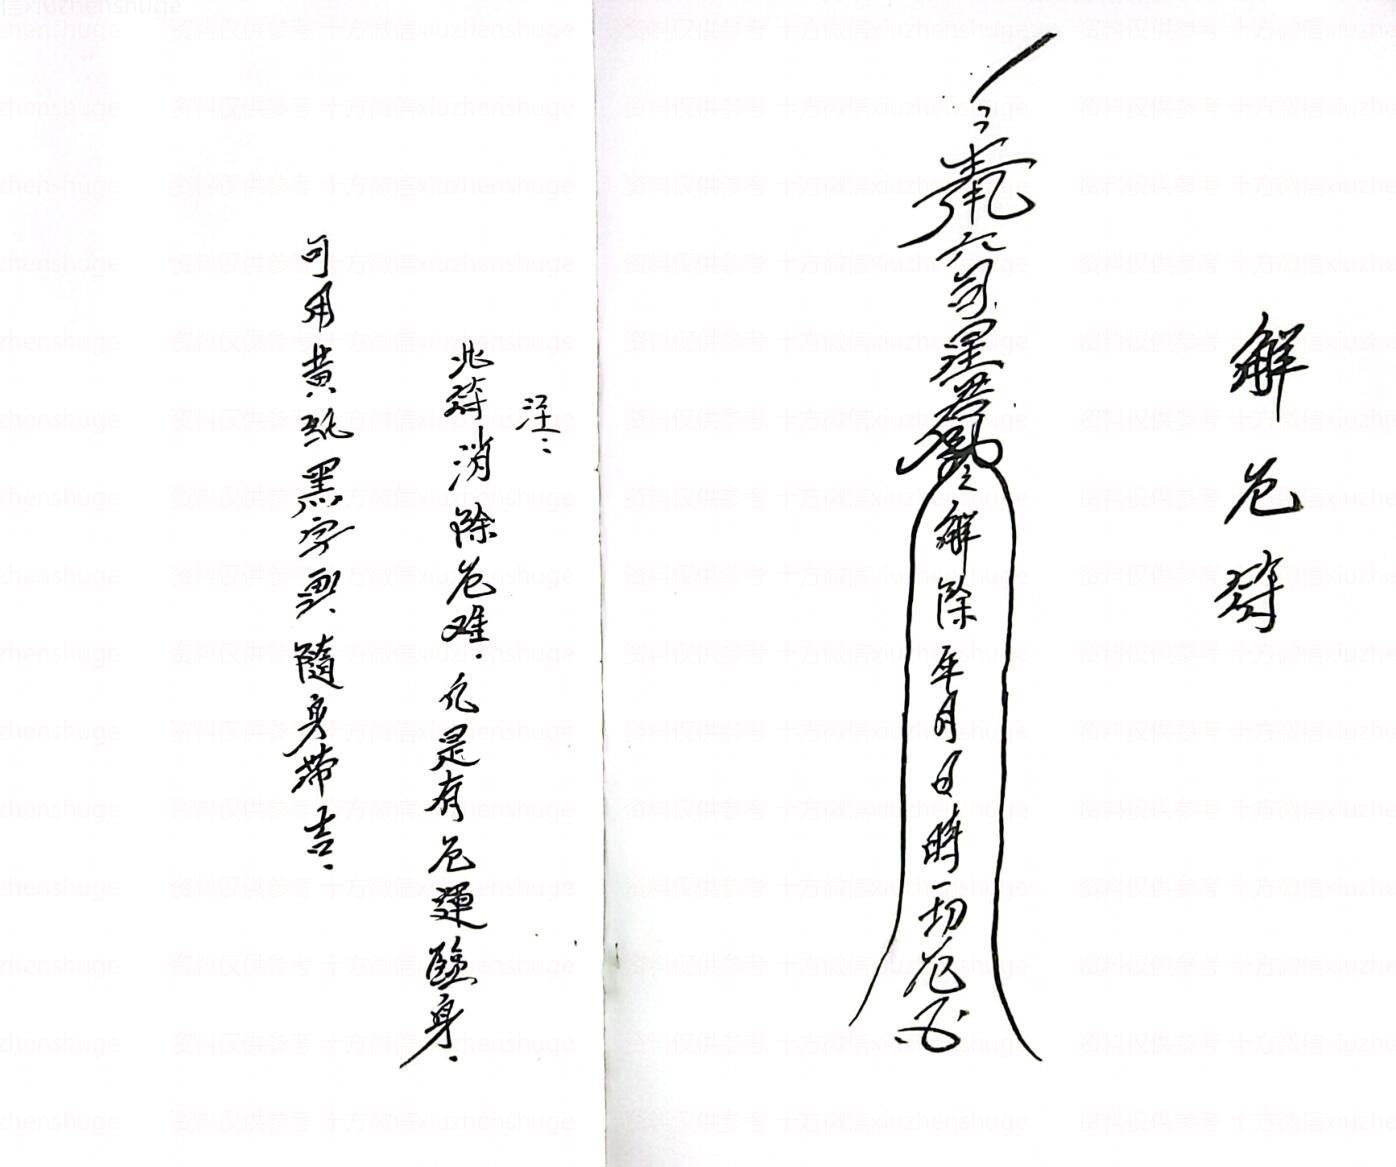 解危符
奉
六司星君
解除年月日時一切危厄
注:
此符消除危难.凡是有危運驗身.
可用黄紙黑字画.隨身带吉.
资料仅供参考 十方微信xiuzhenshuge